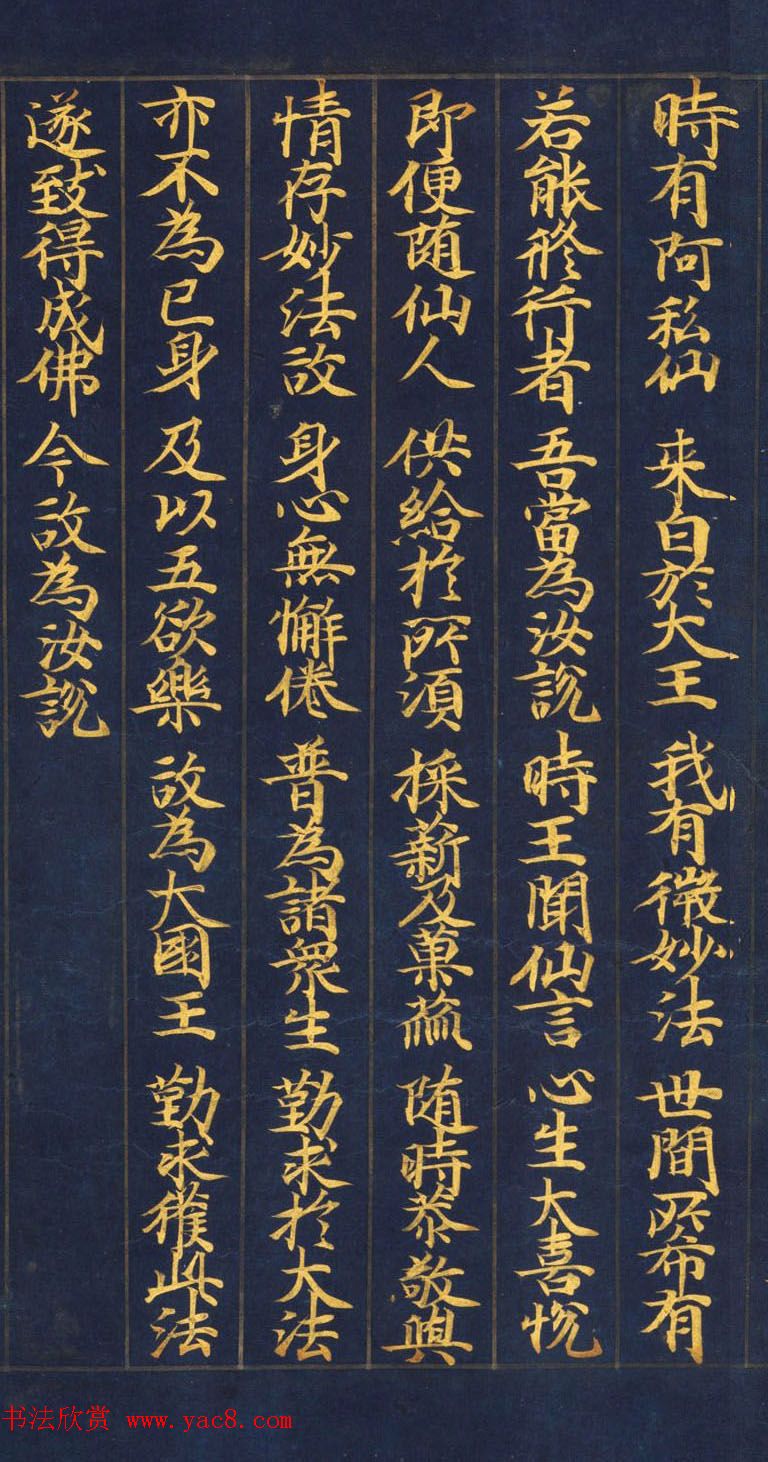 時有阿私仙 来白於大王 我有微妙法 世間所希有
若能修行者 吾當為汝說 時王聞仙言 心生大喜悅
即便随仙人 供給於所須 採薪及菓蓏 随時恭敬與
情存妙法故 身心無懈倦 普為諸眾生 勤求於大法
亦不為己身 及以五欲樂 故為大國王 勤求獲此法
遂致得成佛 今故為汝說
书法欣赏 www.yac8.com